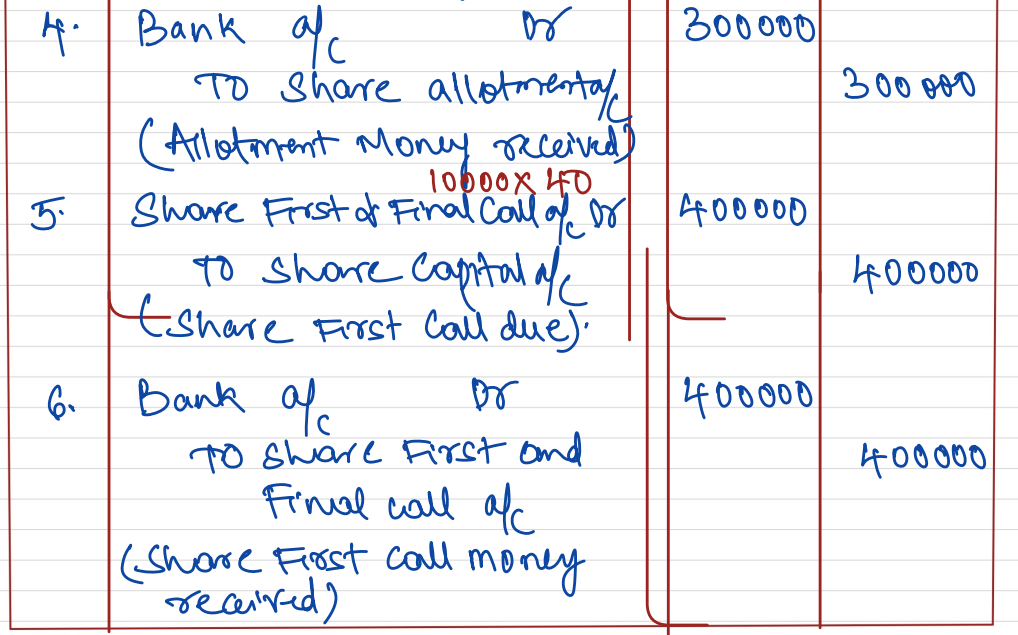 4. Bank a/c Dr 300000
To Share allotment a/c 300000
(Allotment Money received)
10000 X 40
5. Share First & Final Call a/c Dr 400000
To Share Capital a/c 400000
(Share First Call due).
6. Bank a/c Dr 400000
To Share First and 400000
Final call a/c
(Share First Call money
received)